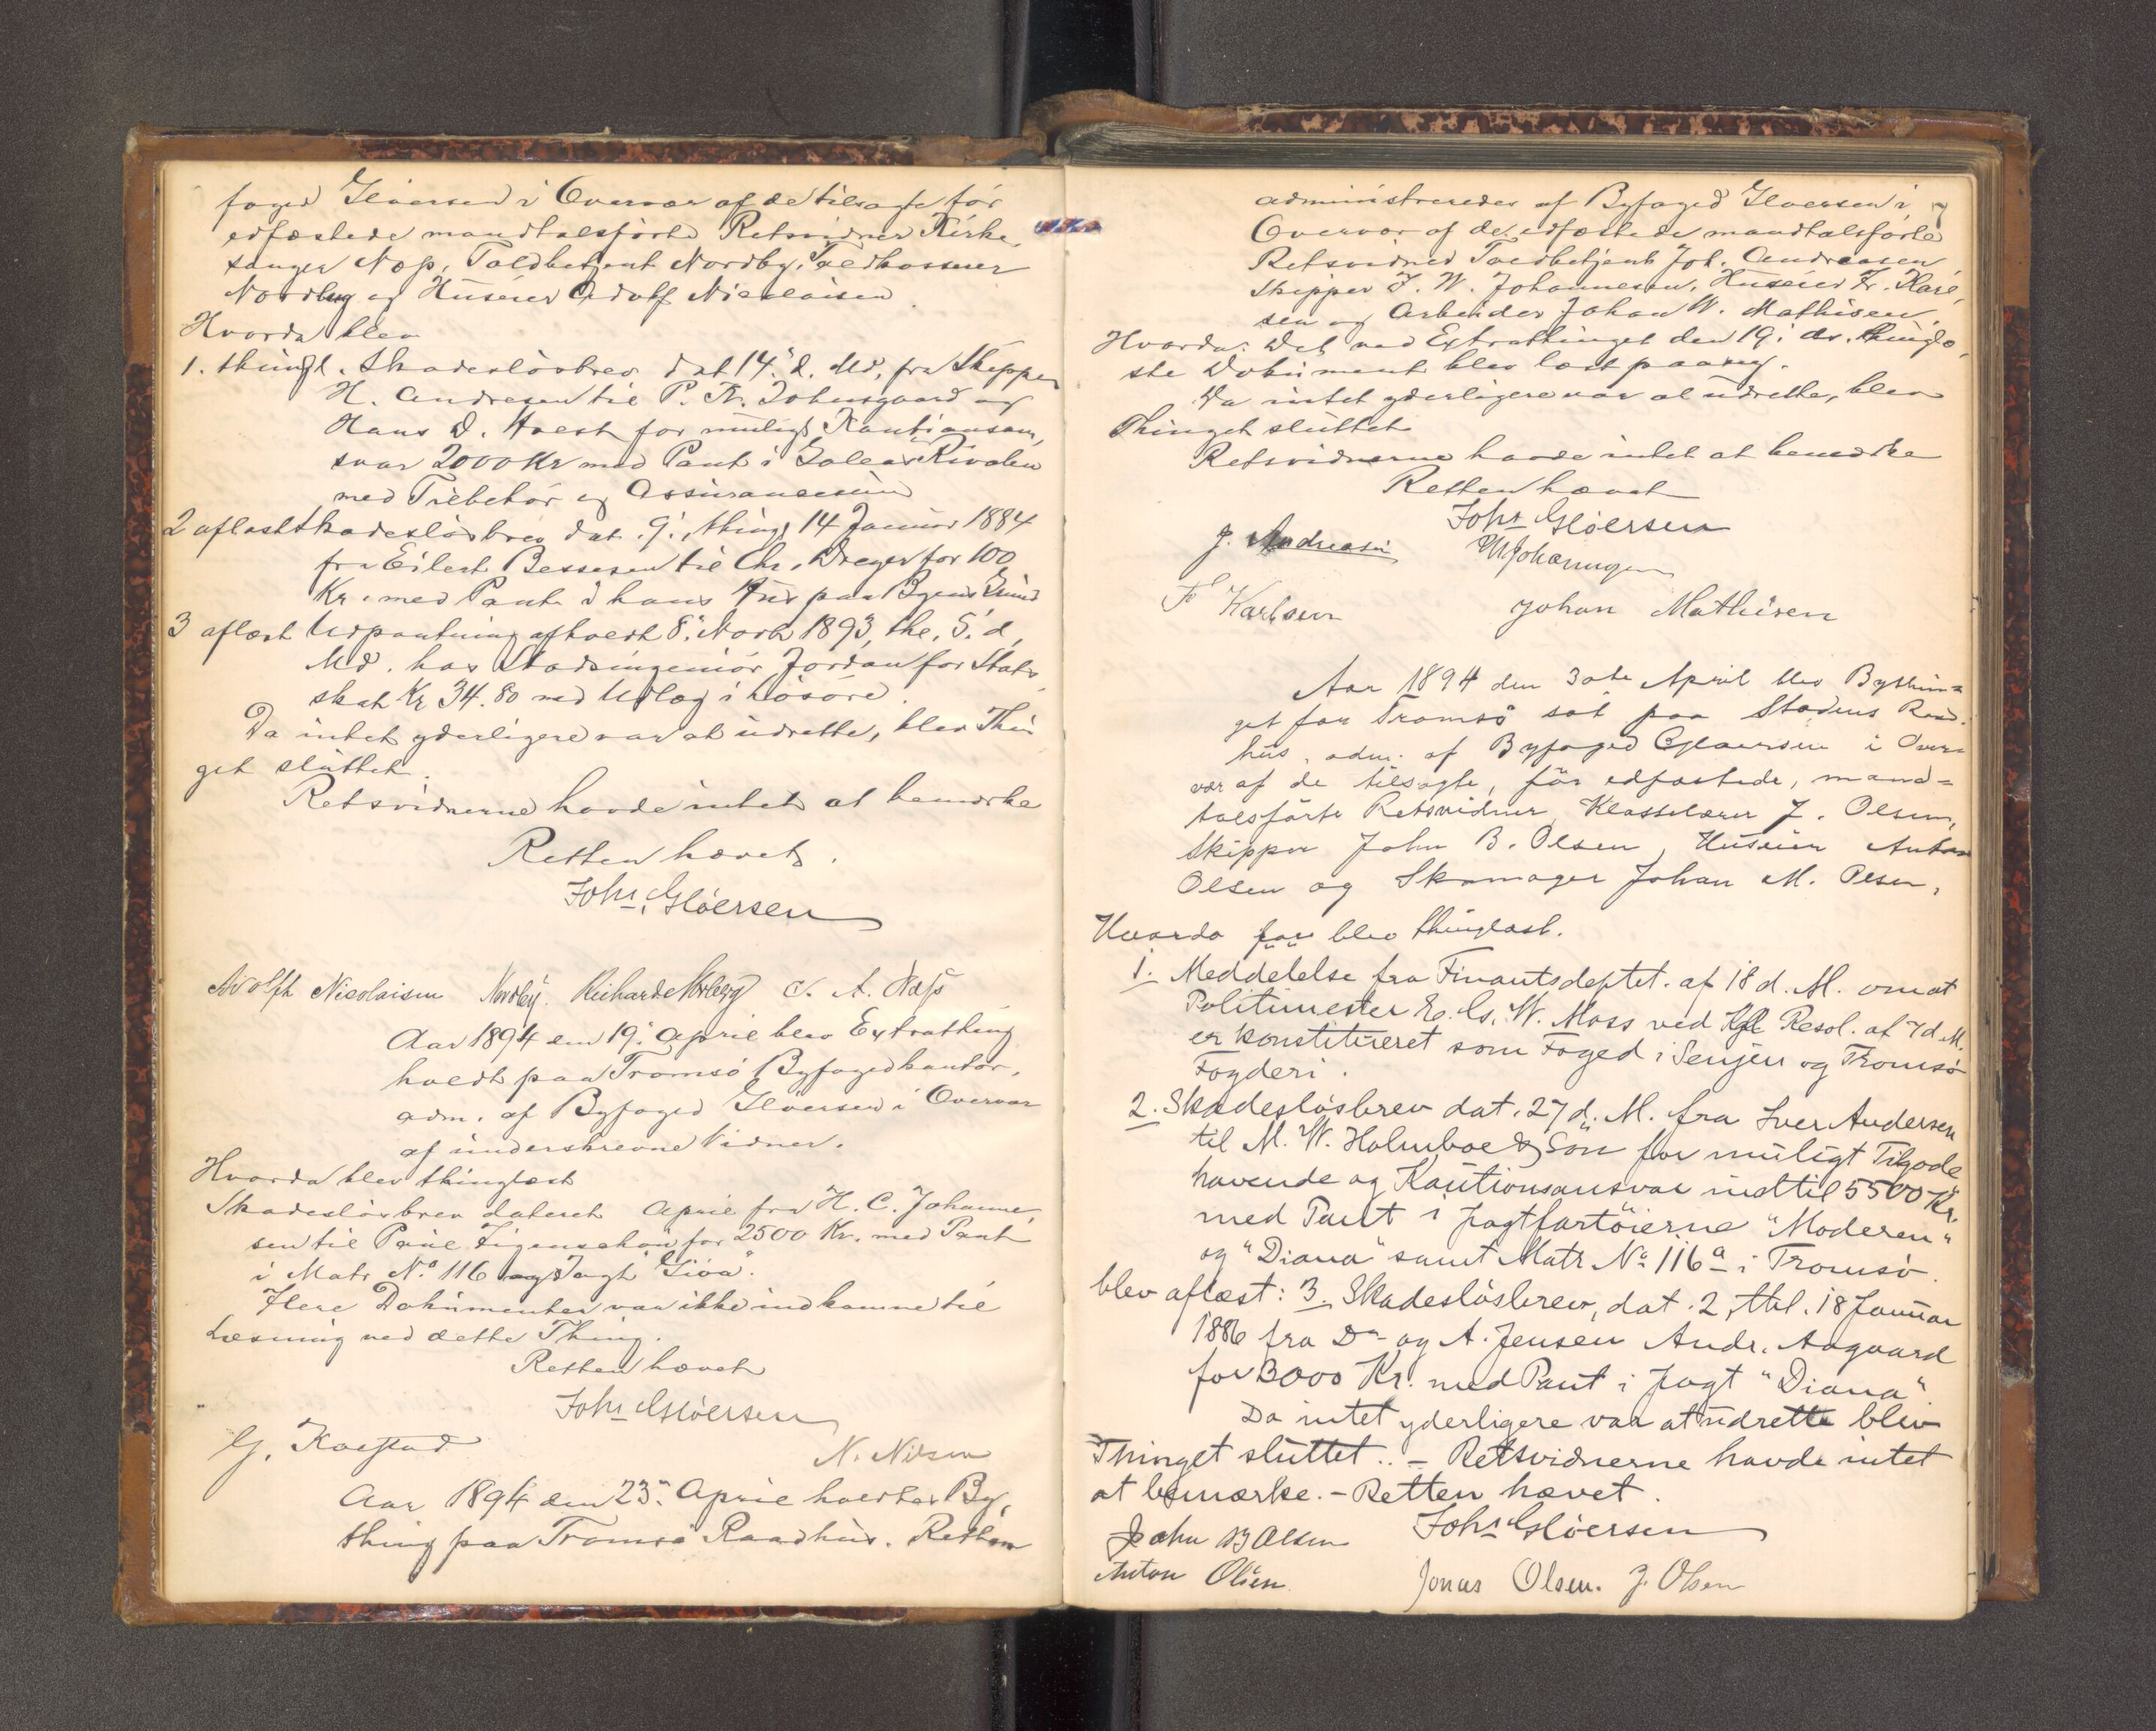 foged Gløersen i Overvær af de tilsagte før
edfæstede mandtalsførte Retsvidner Kirke,
sanger Næss, Toldbetjent Nordby, Toldkasserer
Norberg og Huseier Adolf Nicolaisen.
Hvorda blev
1. thingl. Skadesløsbrev dat 14. d. Md. fra Skipper
H. Andresen til P. Fr. Johnsgaard og
Hans D. Hvest for muligt Kautionsan,
svar 2000 Kr med Pant i Galeas Rivalen
med Tilbehør og Assurancesum
2 aflæst Skadesløsbrev dat. 9., thingl 14 Januar 1884
fra Eilert Bessesen til Chr. Dreyer for 100
Kr. med Pant i hans Hus paa Byens Grund
3 aflæst Udpantning afholdt 8. Novb 1893, thl. 5. d.
Md. hos Stadsingeniør Jordan for Stats
skat Kr 34.80 med Udlæg i Løsøre.
Da intet yderligere var at udrette, blev Thin
get sluttet.
Retsvidnerne havde intet at bemærke
Retten hævet.
Johs Gløersen
Adolph Nicolaisen Nordby. Richard Norberg A. Næss
Aar 1894 den 19. April blev Extrathing
holdt paa Tromsø Byfogedkontor,
adm. af Byfoged Gløersen i Overvær
af underskrevne Vidner.
Hvorda blev thinglæst
Skadesløsbrev dateret April fra H. C. Johanne,
sen til Paul Figenschou for 2500 Kr. med Pant
i Matr No 116 og Jagt "Gjøa".
Flere Dokumenter var ikke indkomne til
Læsning ved dette Thing.
Retten hævet
Johs Gløersen
G. Kaestad N. Nilsen
Aar 1894 den 23. April holdtes By,
thing paa Tromsø Raadhus. Retten
administreredes af Byfoged Gløersen i
Overvær af de edfæstede mandtalsførte
Retsvidner Toldbetjent Joh. Andreasen,
Skipper J. W. Johannesen, Huseier Fr. Karl,
sen og Arbeider Johan W. Mathisen.
Hvorda: Det ved Extrathinget den 19. ds. thinglæ,
ste Dokument blev læst paany.
Da intet yderligere var at udrette, blev
Thinget sluttet
Retsvidnerne havde intet at bemærke
Retten hævet
Johs Gløersen
J. Andreasen W Johannesen
F Karlsen Johan Mathisen
Aar 1894 den 30te April blev Bythin=
get for Tromsø sat paa Stadens Raad.
hus, adm. af Byfoged Gløersen i Over=
vær af de tilsagte, før edfæstede, mand=
talsførte Retsvidner, Klasselærer J. Olsen,
Skipper John B. Olsen, Huseier Anton
Olsen og Skomager Johan M. Olsen,
Hvorda før blev thinglæst.
1. Meddelelse fra Finantsdeptet. af 18 d. M. om at
Politimester E. Cs. W. Moss ved Kgl Resol. af 7 d. M.
er konstitueret som Foged i Senjen og Tromsø
Fogderi.
2. Skadesløsbrev dat. 27 d. M. fra Iver Andersen
til M. W. Holmboe & Søn for muligt Tilgode
havende og Kautionsansvar indtil 5500 Kr.
med Pant i Jagtfartøierne "Moderen"
og "Diana" samt Matr No 116a i Tromsø.
blev aflæst: 3. Skadesløsbrev, dat. 2, thl. 18 Januar
1886 fra Do og A. Jensen Andr. Aagaard
for 3000 Kr. med Pant i Jagt "Diana"
Da intet yderligere var at udrette blev
Thinget sluttet.. – Retsvidnerne havde intet
at bemærke. – Retten hævet.
Johs Gløersen
John B Olsen
Anton Olsen Jonas Olsen. J. Olsen